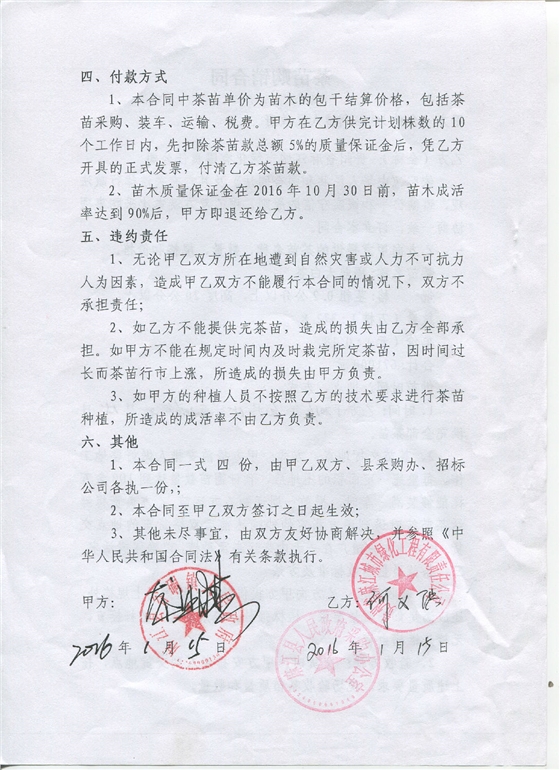 四、付款方式
1、本合同中茶苗单价为苗木的包干结算价格，包括茶
苗采购、装车、运输、税费。甲方在乙方供完计划株数的 10
个工作日内，先扣除茶苗款总额 5%的质量保证金后，凭乙方
开具的正式发票，付清乙方茶苗款。
2、苗木质量保证金在 2016 年 10 月 30 日前，苗木成活
率达到 90%后，甲方即退还给乙方。
五、违约责任
1、无论甲乙双方所在地遭到自然灾害或人力不可抗力
人为因素，造成甲乙双方不能履行本合同的情况下，双方不
承担责任；
2、如乙方不能提供完茶苗，造成的损失由乙方全部承
担。如甲方不能在规定时间内及时栽完所定茶苗，因时间过
长而茶苗行市上涨，所造成的损失由甲方负责。
3、如甲方的种植人员不按照乙方的技术要求进行茶苗
种植，所造成的成活率不由乙方负责。
六、其他
1、本合同一式 四 份，由甲乙双方、县采购办、招标
公司各执一份,；
2、本合同至甲乙双方签订之日起生效；
3、其他未尽事宜，由双方友好协商解决，并参照《中
华人民共和国合同法》有关条款执行。
甲方： 乙方：
2016 年 1 月 05 日 2016 年 1 月 15 日